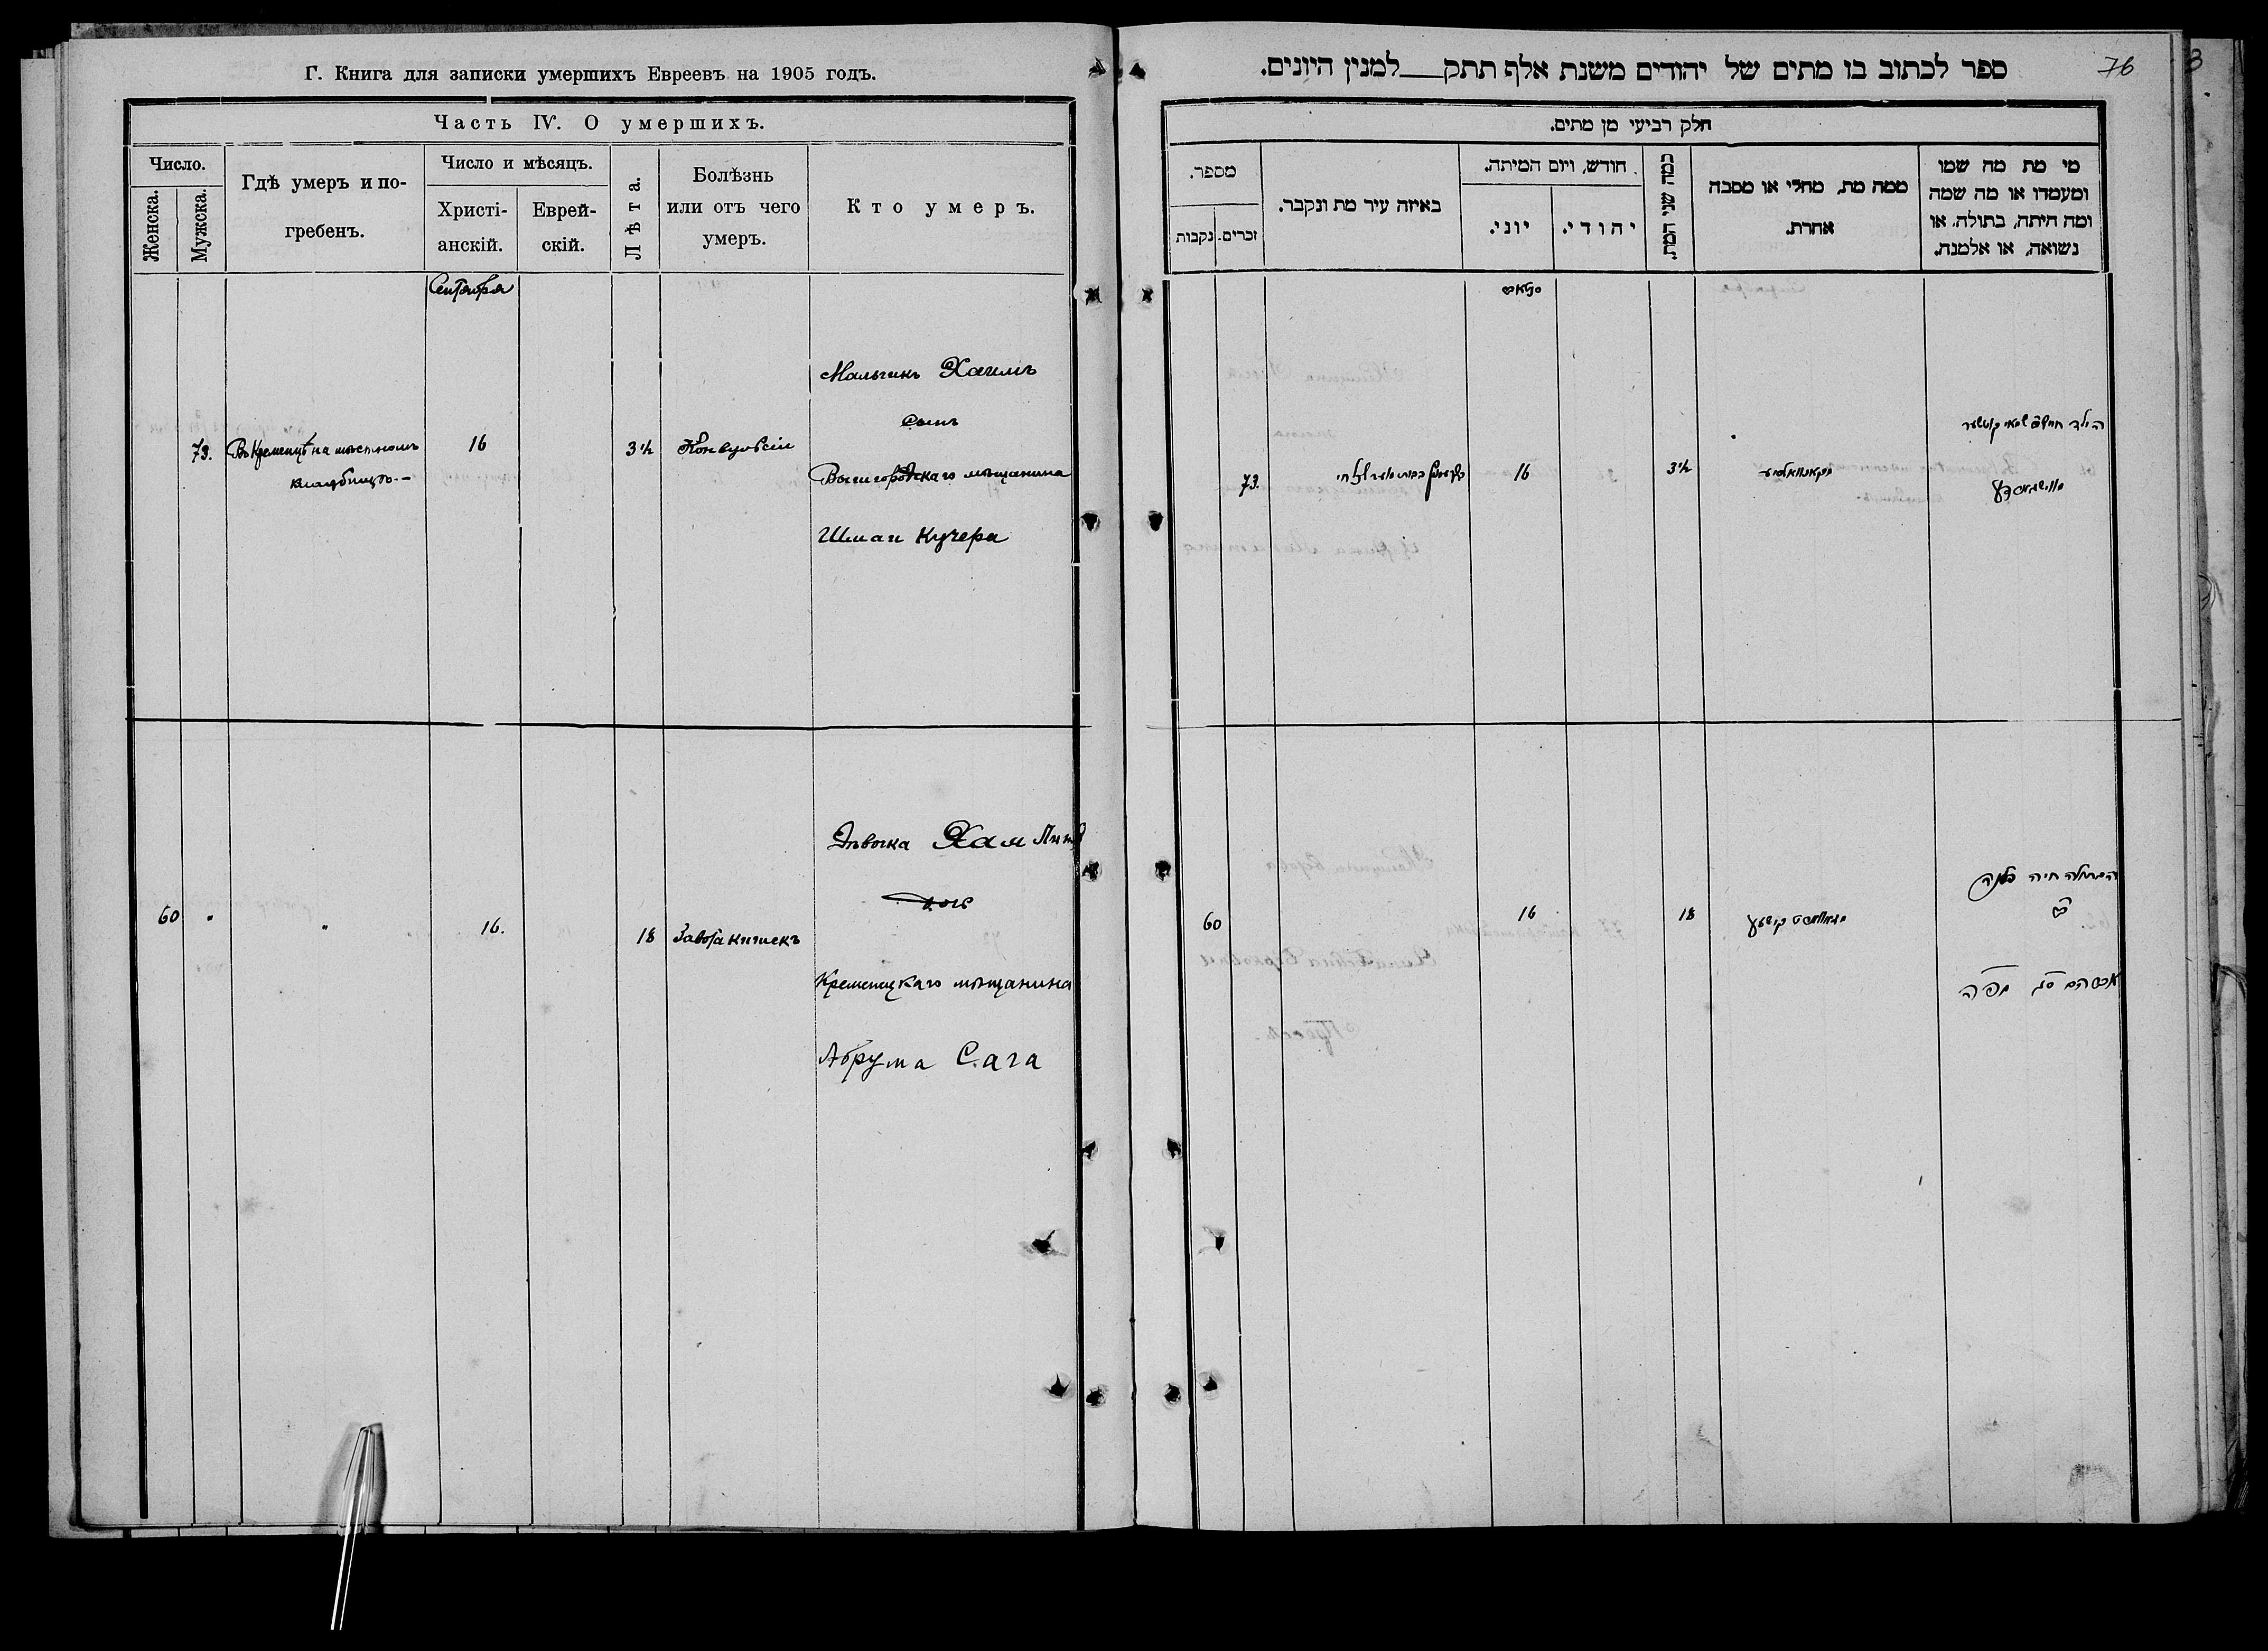 Г. Книга для записки умершихъ Евреевъ на 1905 годъ.
Часть IV. О умершихъ.
Число.
Женска.
Мужска.
Гдѣ умеръ и по-
гребенъ.
Число и мѣсяцъ.
Христі-
анскій.
Еврей-
скій.
Лѣта.
Болѣзнь
или отъ чего
умеръ.
Кто умеръ.
Сентября
73.
Въ Кременцѣ на мѣстномъ
кладбищѣ.-
16
3 ч
Конвульсіи
Мальчикъ Хаимъ
сынъ
Вышгородскаго мѣщанина
Шмаи Кучера
60
"
"
16.
18
Заворъ кишекъ
Дѣвочка Хая
дочь
Кременецкаго мѣщанина
Абрума Сага
76
3
ספר לכתוב בו מתים של יהודים משנת אלף תתק למנין היונים.
חלק רביעי מן מתים.
מספר.
נקבות
זכרים.
באיזה עיר מת ונקבר.
חודש, ויום המיתה.
יוני.
יהודי.
כמה שני המת.
ממה מת, מחלי או מסבה
אחרת.
מי מת מה שמו
ומעמדו או מה שמה
ומה היתה, בתולה, או
נשואה, או אלמנה.
73.
16
הילד חיים
60
16
18
הבתולה חיה
אברהם